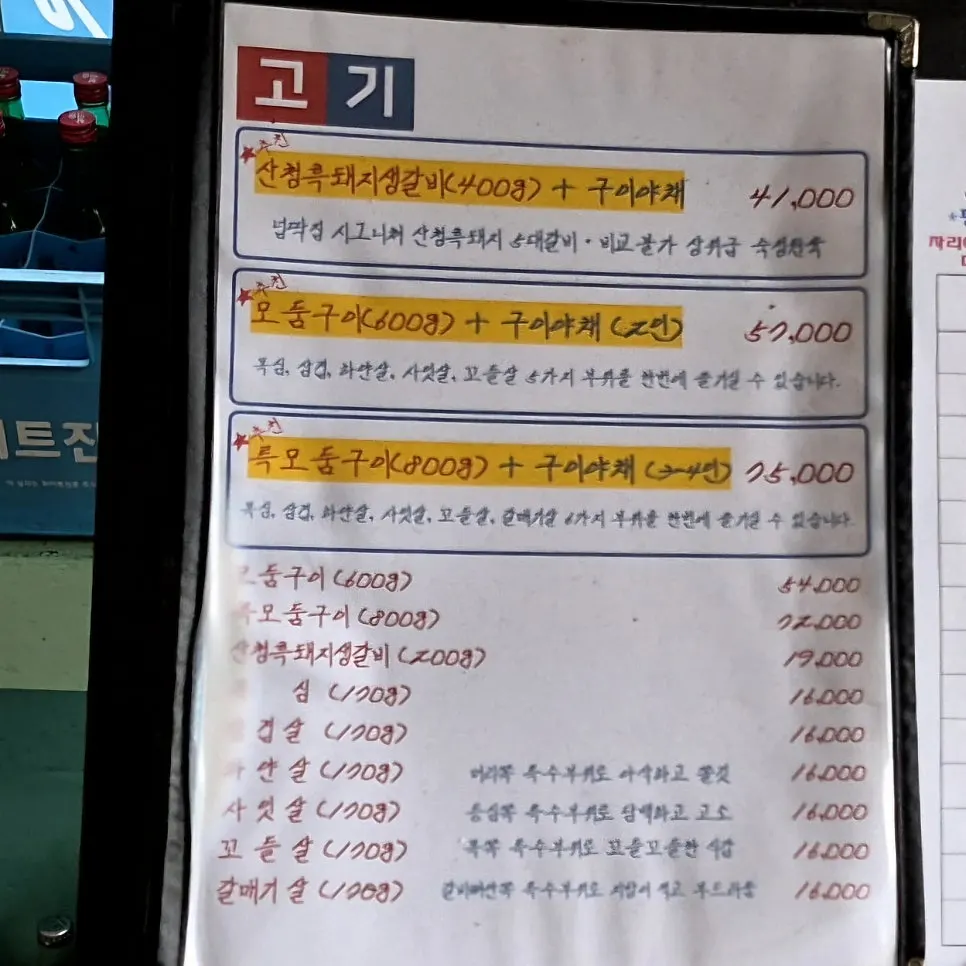 고기
추천
산청흑돼지생갈비(400g) + 구이야채 41,000
넙딱집 시그니처 산청흑돼지 생대갈비 · 비교불가 상위급 숙성한육
추천
모둠구이(600g) + 구이야채 (2인) 57,000
목심, 삼겹, 하얀살, 사잇살, 꼬들살 5가지 부위를 한번에 즐기실 수 있습니다.
추천
특모둠구이(800g) + 구이야채 (3~4인) 75,000
목심, 삼겹, 하얀살, 사잇살, 꼬들살, 갈매기살 6가지 부위를 한번에 즐기실 수 있습니다.
모둠구이(600g) 54,000
특모둠구이(800g) 72,000
산청흑돼지생갈비(200g) 19,000
심 (170g) 16,000
겹살 (170g) 16,000
하얀살 (170g) 머리쪽 특수부위로 아삭하고 쫄깃 16,000
사잇살 (170g) 등심쪽 특수부위로 담백하고 고소 16,000
꼬들살 (170g) 목쪽 특수부위로 꼬들꼬들한 식감 16,000
갈매기살 (170g) 특수부위로 부드러움 16,000